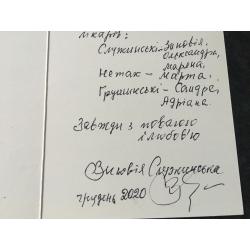 лікарів:
Служинські - Зиновія,
Олександра,
Маряна,
Нетак - Марта.
Грушинські - Сандра,
Адріана.
Завжди з повагою
і любов'ю
Зиновія Служинська
грудень 2020